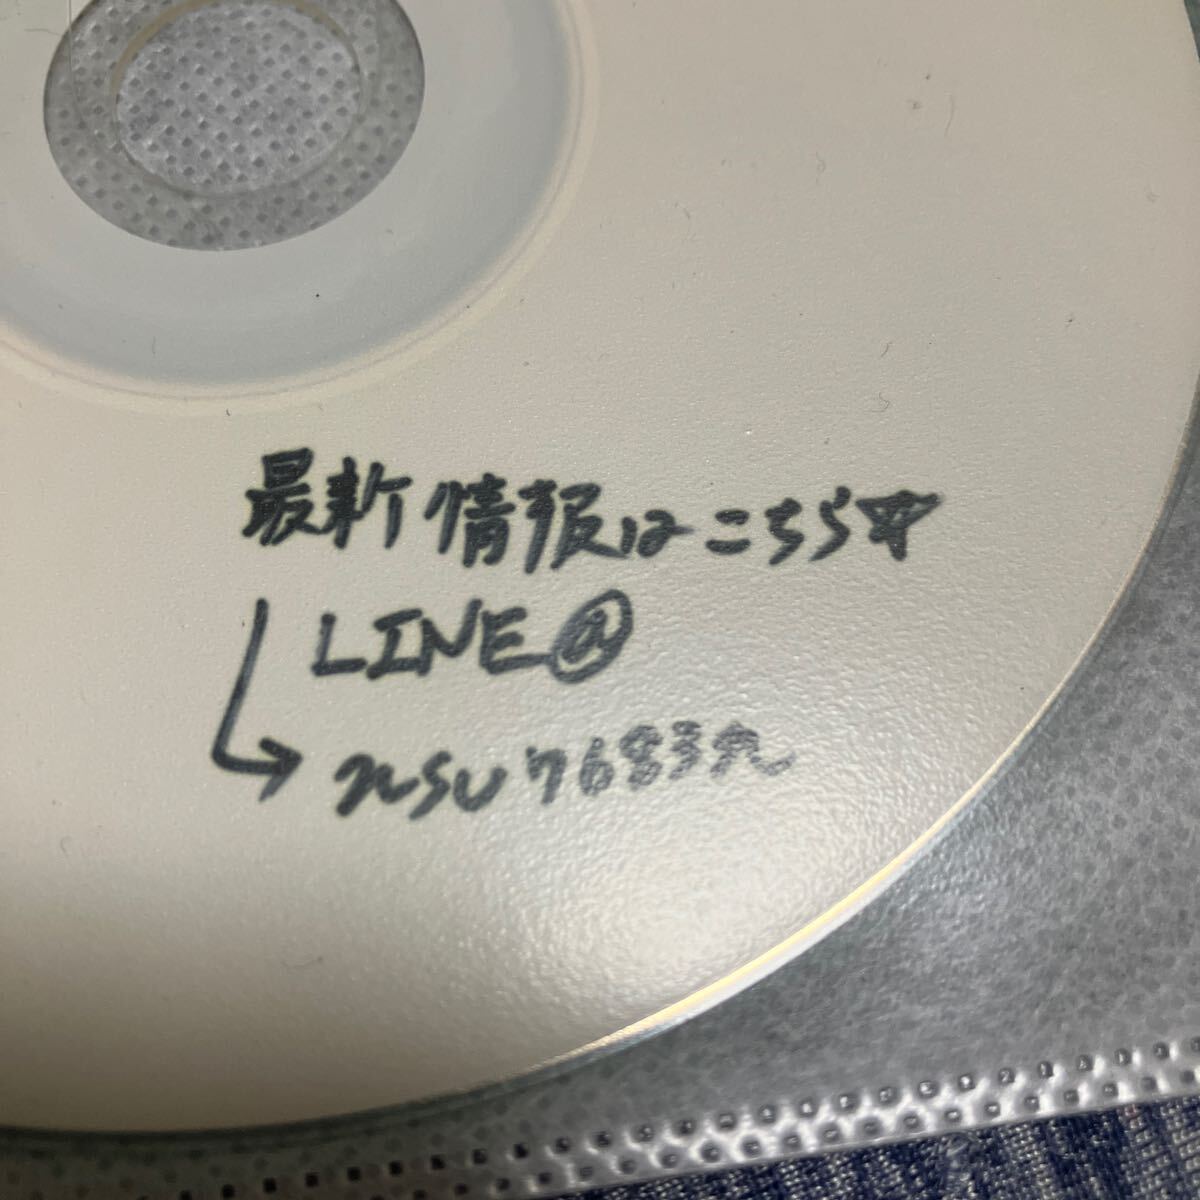 最新情報はこちら☆
LINE@
nsu7683n